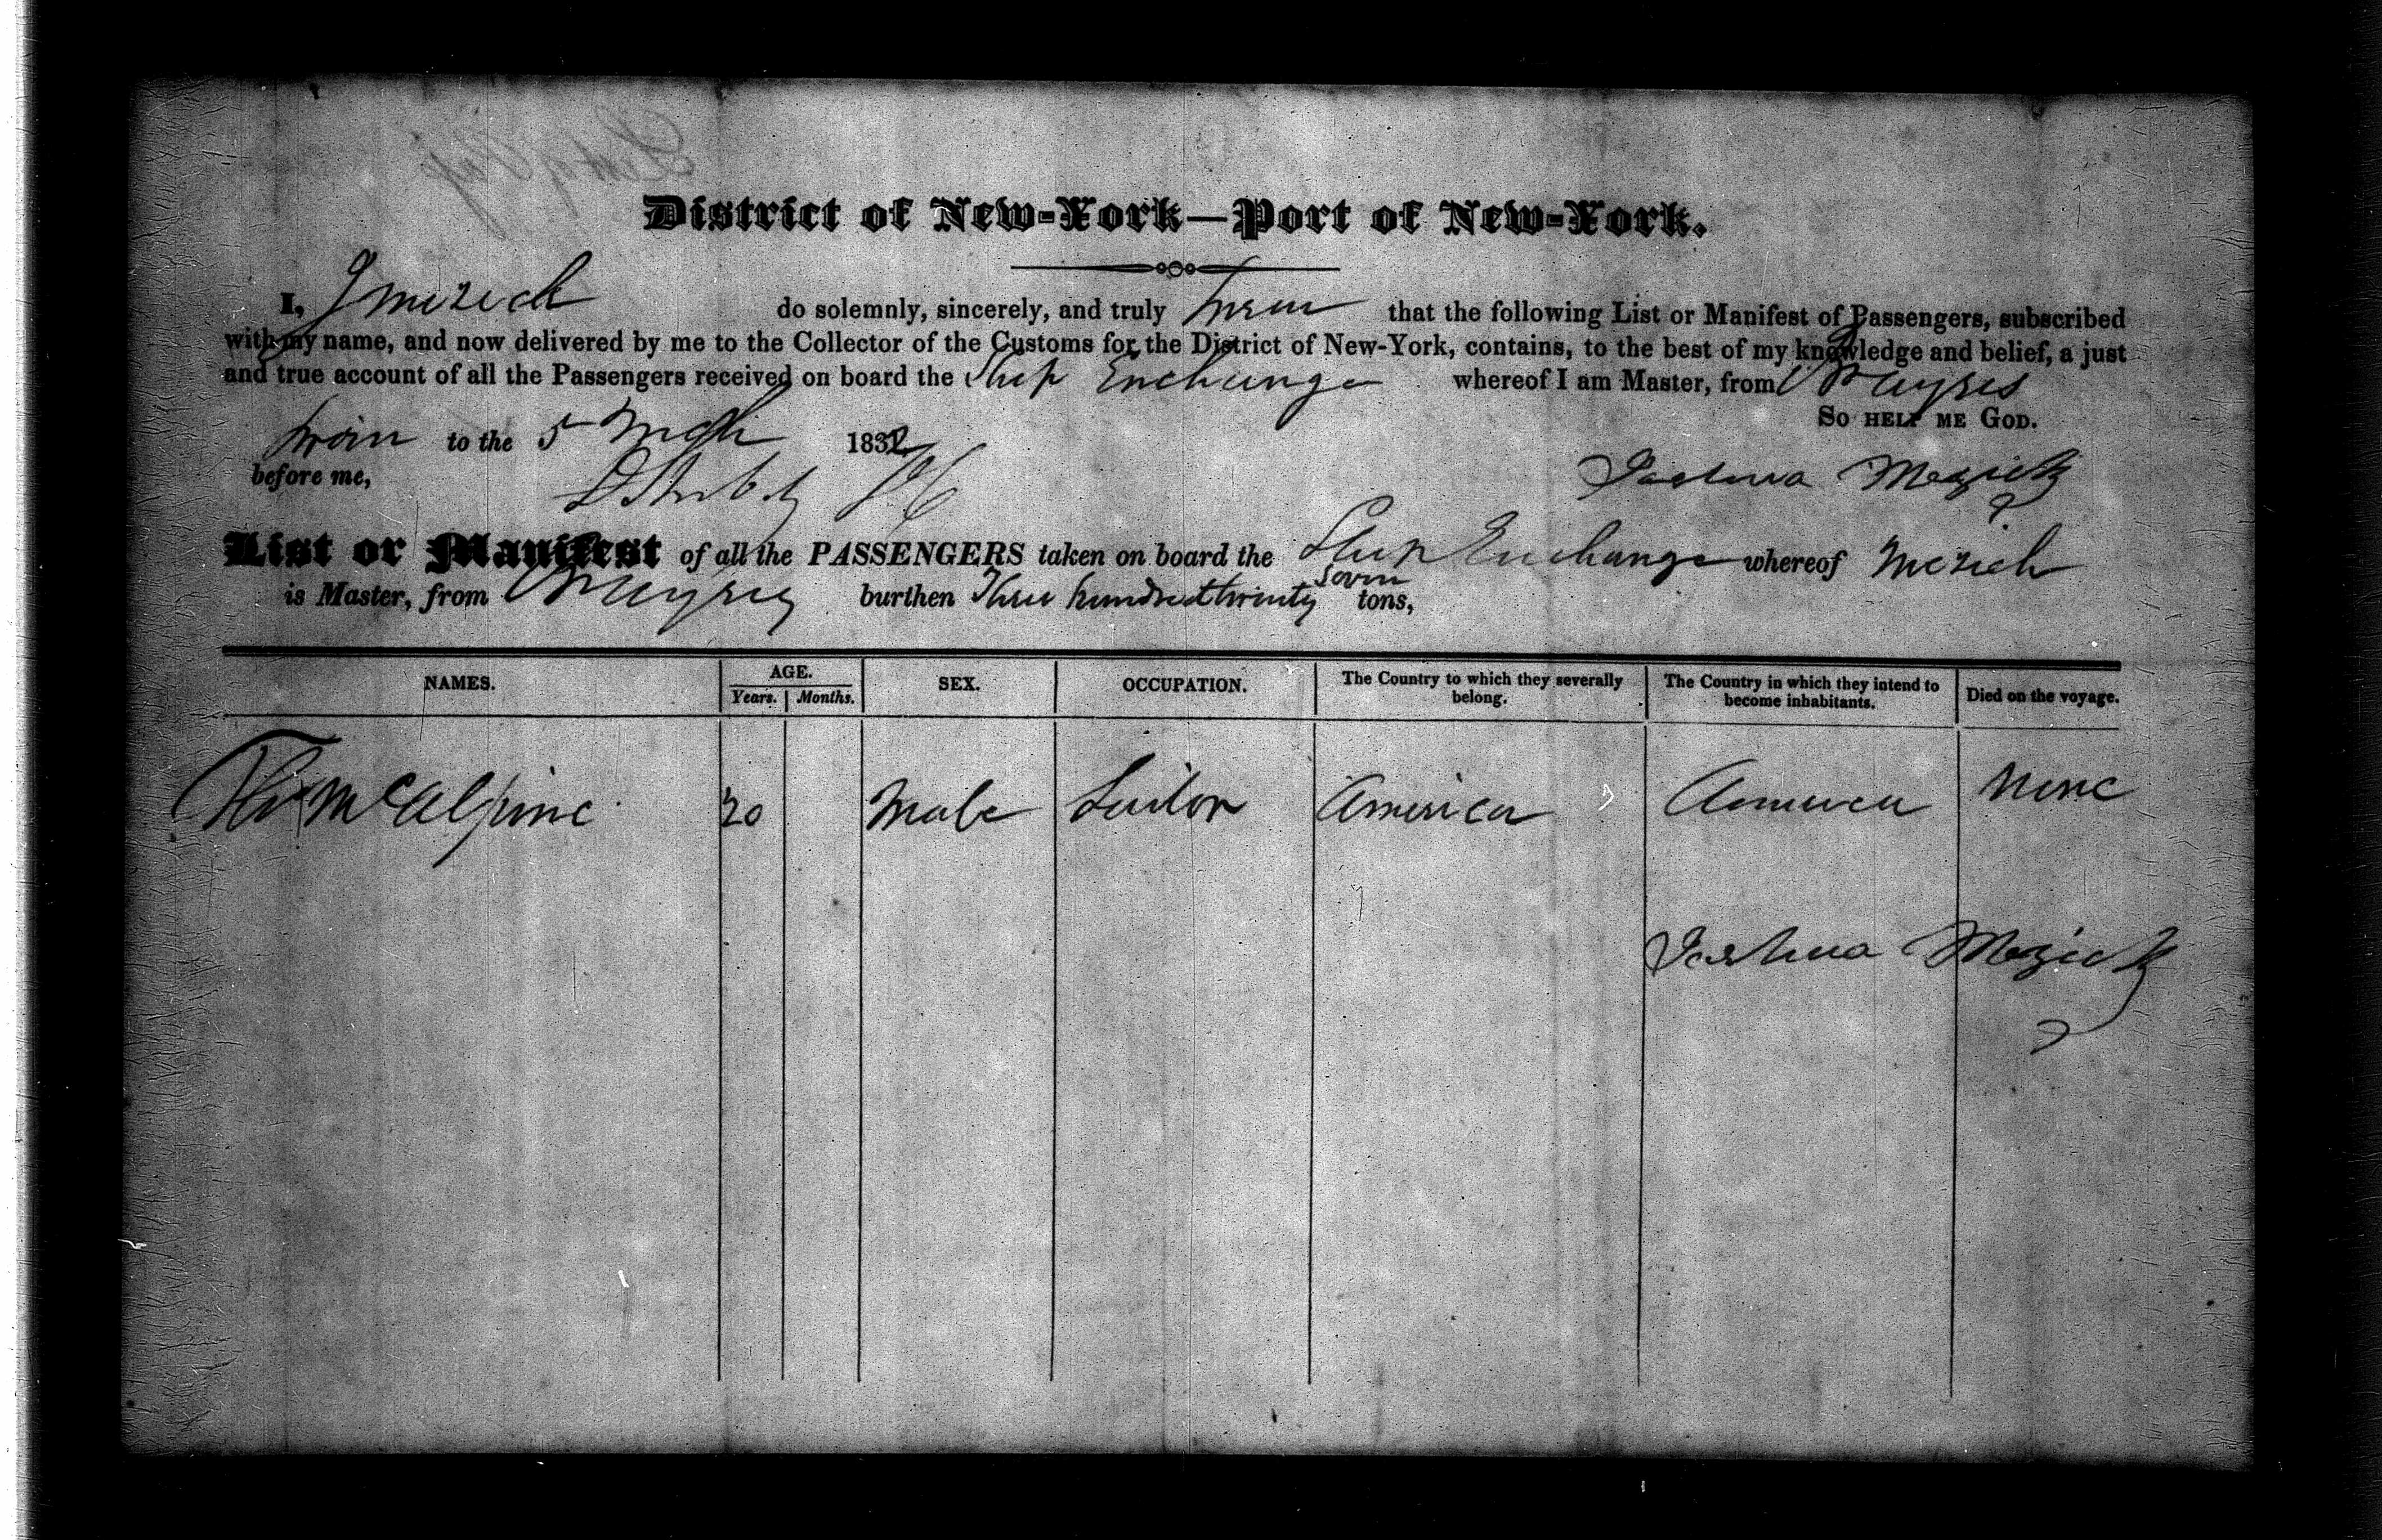 District of New-York—Port of New-York.
I, J Mezick do solemnly, sincerely, and truly swear that the following List or Manifest of Passengers, subscribed
with my name, and now delivered by me to the Collector of the Customs for the District of New-York, contains, to the best of my knowledge and belief, a just
and true account of all the Passengers received on board the Ship Exchange whereof I am Master, from
So help me God.
Sworn to the 5 March 1832
before me,
Joshua Mezick
List or Manifest of all the PASSENGERS taken on board the Ship Exchange whereof Mezick
is Master, from burthen Three hundred twenty seven tons,
NAMES. AGE. Years. Months. SEX. OCCUPATION. The Country to which they severally belong. The Country in which they intend to become inhabitants. Died on the voyage.
Thos McAlpine 20 Male Sailor America America None
Joshua Mezick